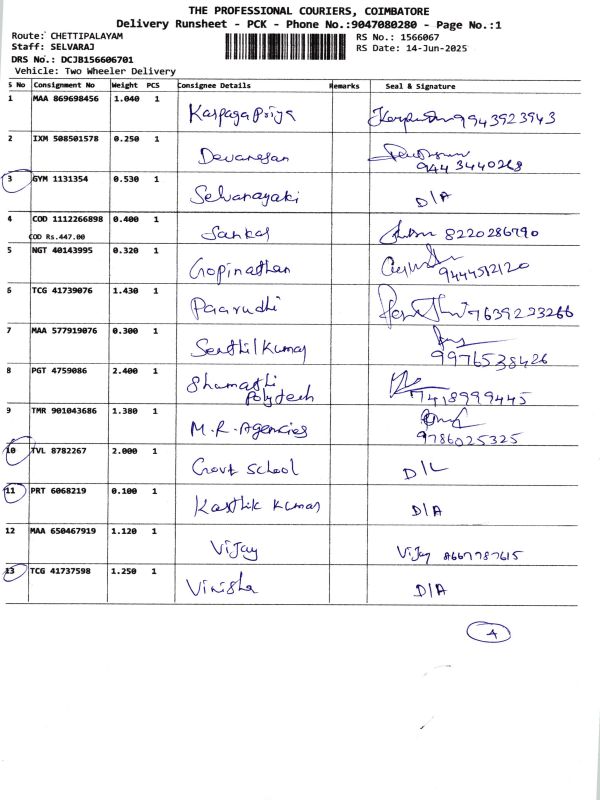 THE PROFESSIONAL COURIERS, COIMBATORE
Delivery Runsheet - PCK - Phone No.:9047080280 - Page No.:1
Route: CHETTIPALAYAM RS No.: 1566067
Staff: SELVARAJ RS Date: 14-Jun-2025
DRS No.: DCJB156606701
Vehicle: Two Wheeler Delivery
S No Consignment No Weight PCS Consignee Details Remarks Seal & Signature
1 MAA 869698456 1.040 1 Karpaga Priya 9943923943
2 IXM 508501578 0.250 1 Devanesan
9443440268
3 GYM 1131354 0.530 1 Selvanayaki D/A
4 COD 1112266898 0.400 1 Sankar 8220286790
COD Rs.447.00
5 NGT 40143995 0.320 1 Gopinathan
9444512120
6 TCG 41739076 1.430 1 Paarudhi 7639223266
7 MAA 577919076 0.300 1 Senthil Kumar
9976538426
8 PGT 4759086 2.400 1 Shumathi
Polytech 7418999445
9 TMR 901043686 1.380 1 M.R. Agencies
9786025325
10 TVL 8782267 2.000 1 Govt School D/L
11 PRT 6068219 0.100 1 Karthik Kumar D/A
12 MAA 650467919 1.120 1 Vijay Vijay 8667787615
13 TCG 41737598 1.250 1 Vinisha D/A
4